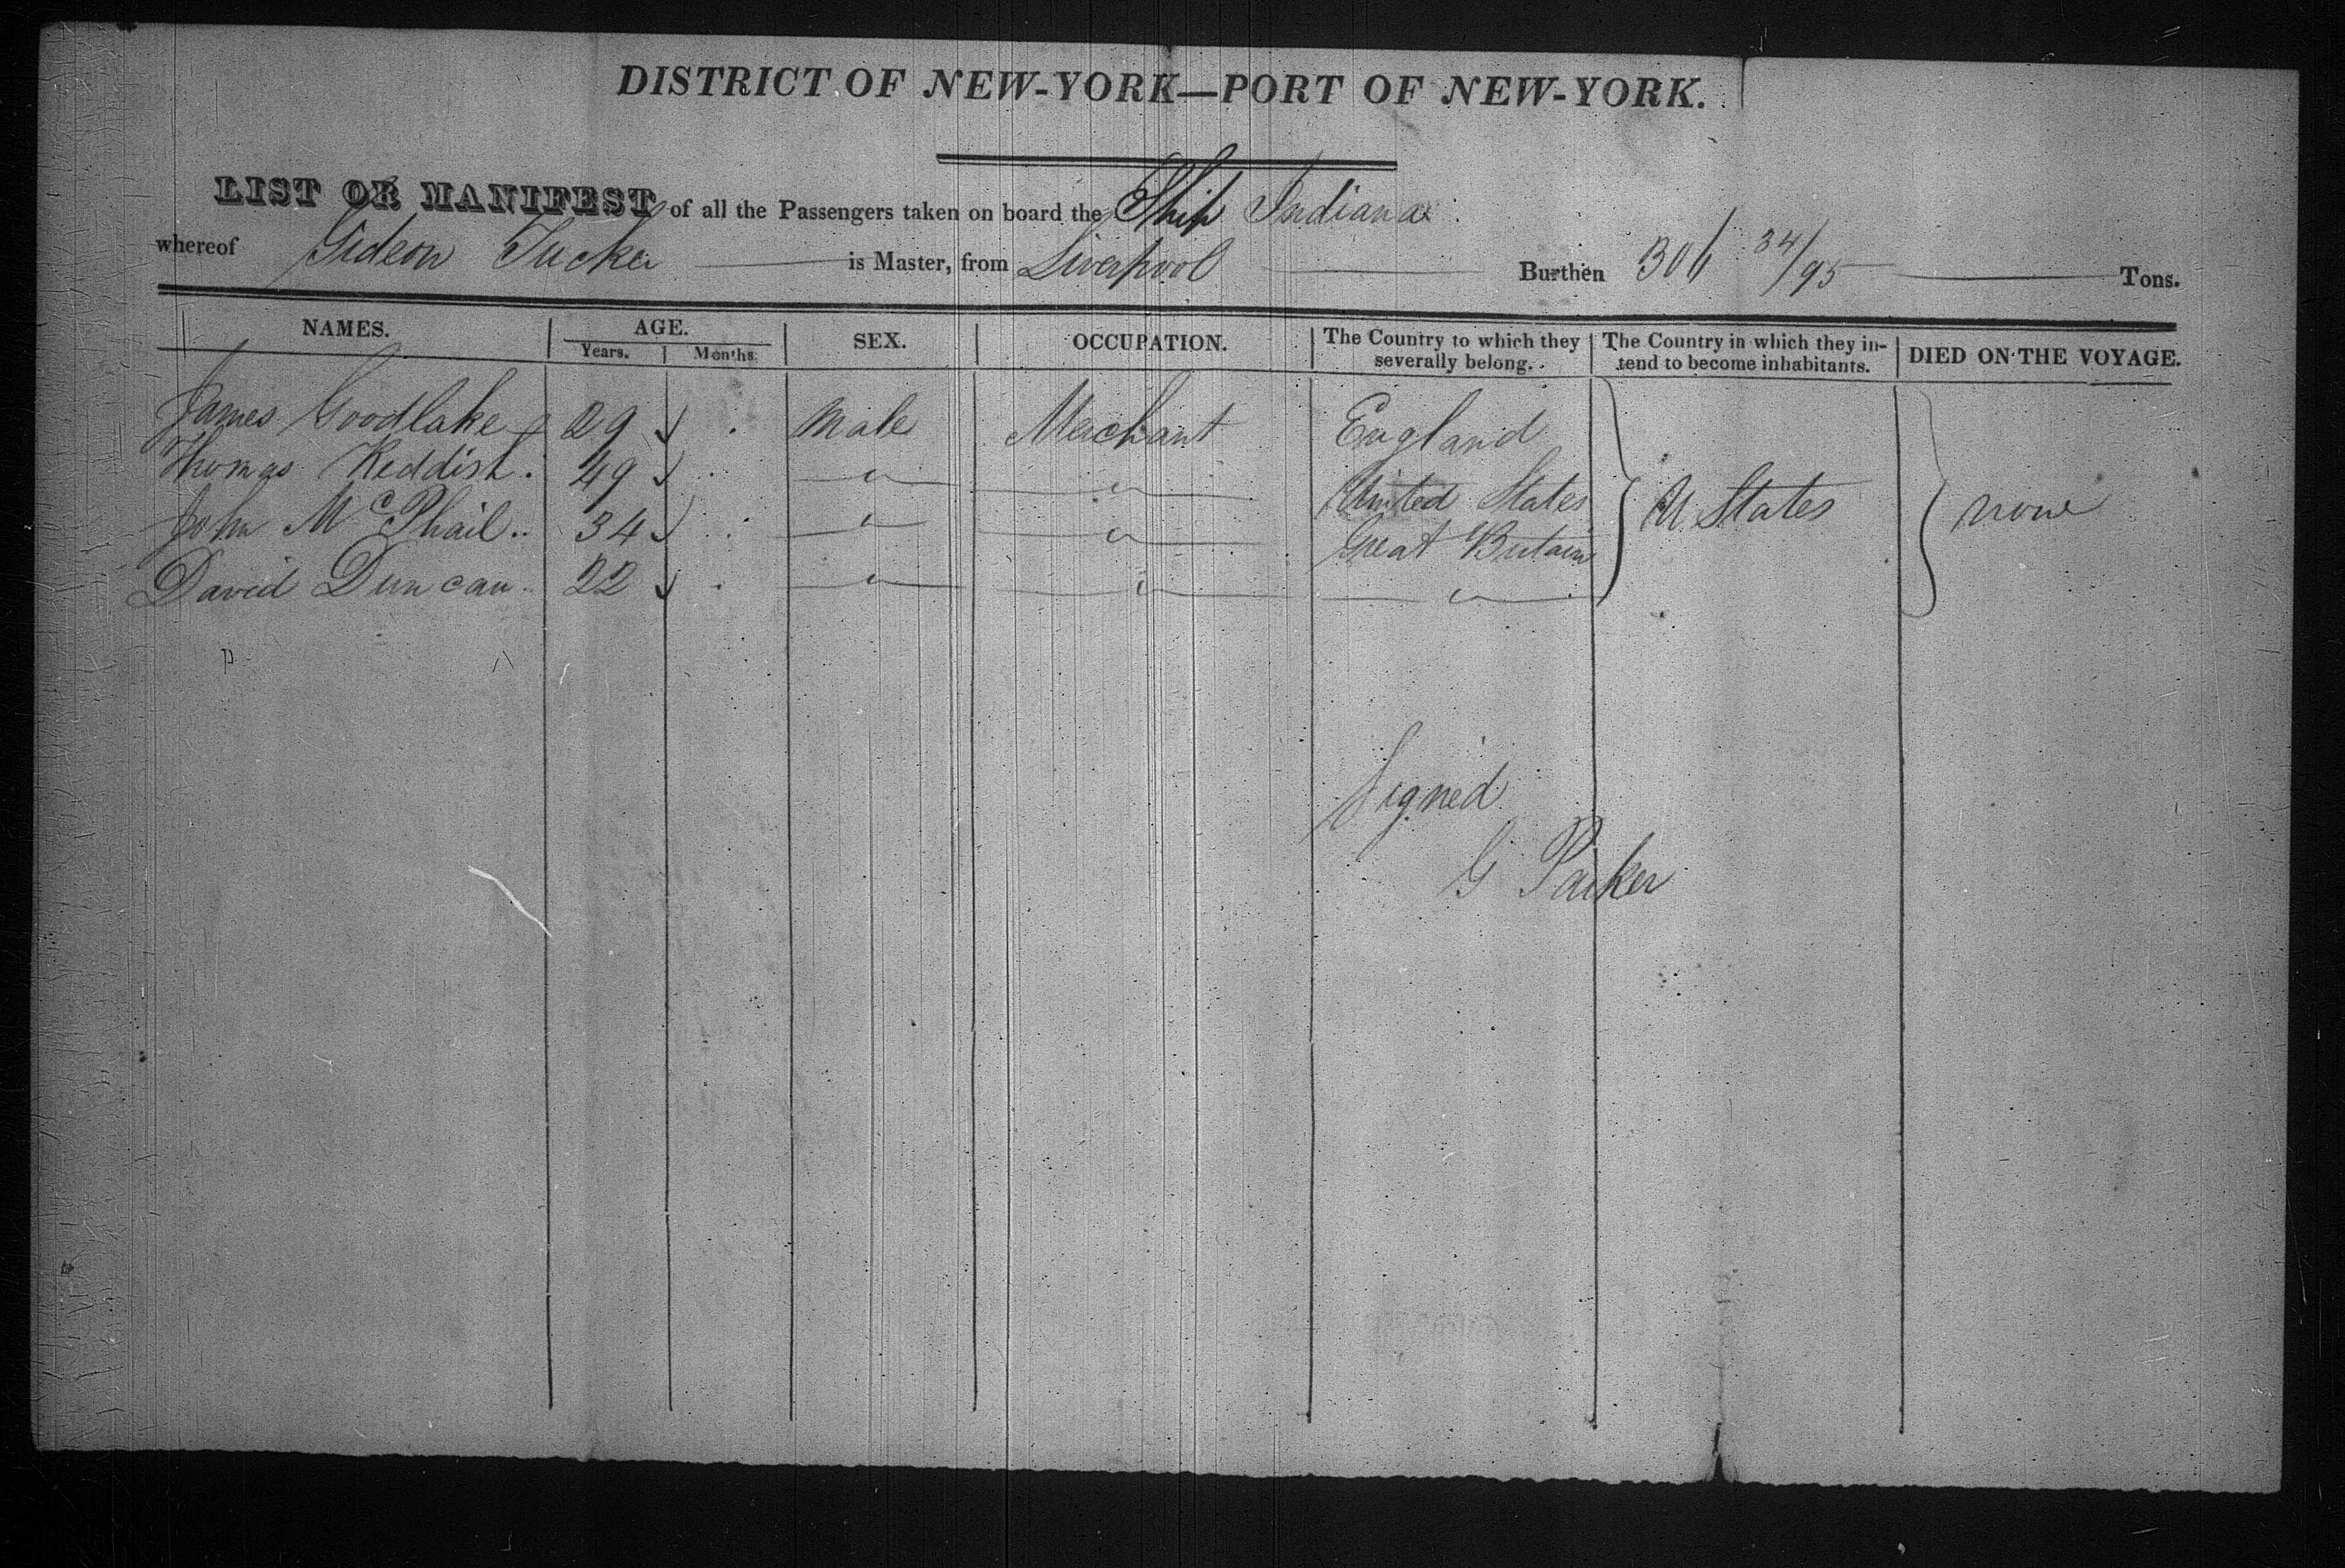 DISTRICT OF NEW-YORK—PORT OF NEW-YORK.
LIST OR MANIFEST of all the Passengers taken on board the Ship Indiana
whereof Gideon Tucker is Master, from Liverpool Burthen 306 34/95 Tons.
NAMES. AGE. SEX. OCCUPATION. The Country to which they severally belong. The Country in which they in-tend to become inhabitants. DIED ON THE VOYAGE.
Years. Months.
James Goodlake 29 Male Merchant England
Thomas Reddish. 49 " " United States
John McPhail.. 34 " " Great Britain U. States none
David Duncan.. 22 " " "
Signed
G Parker